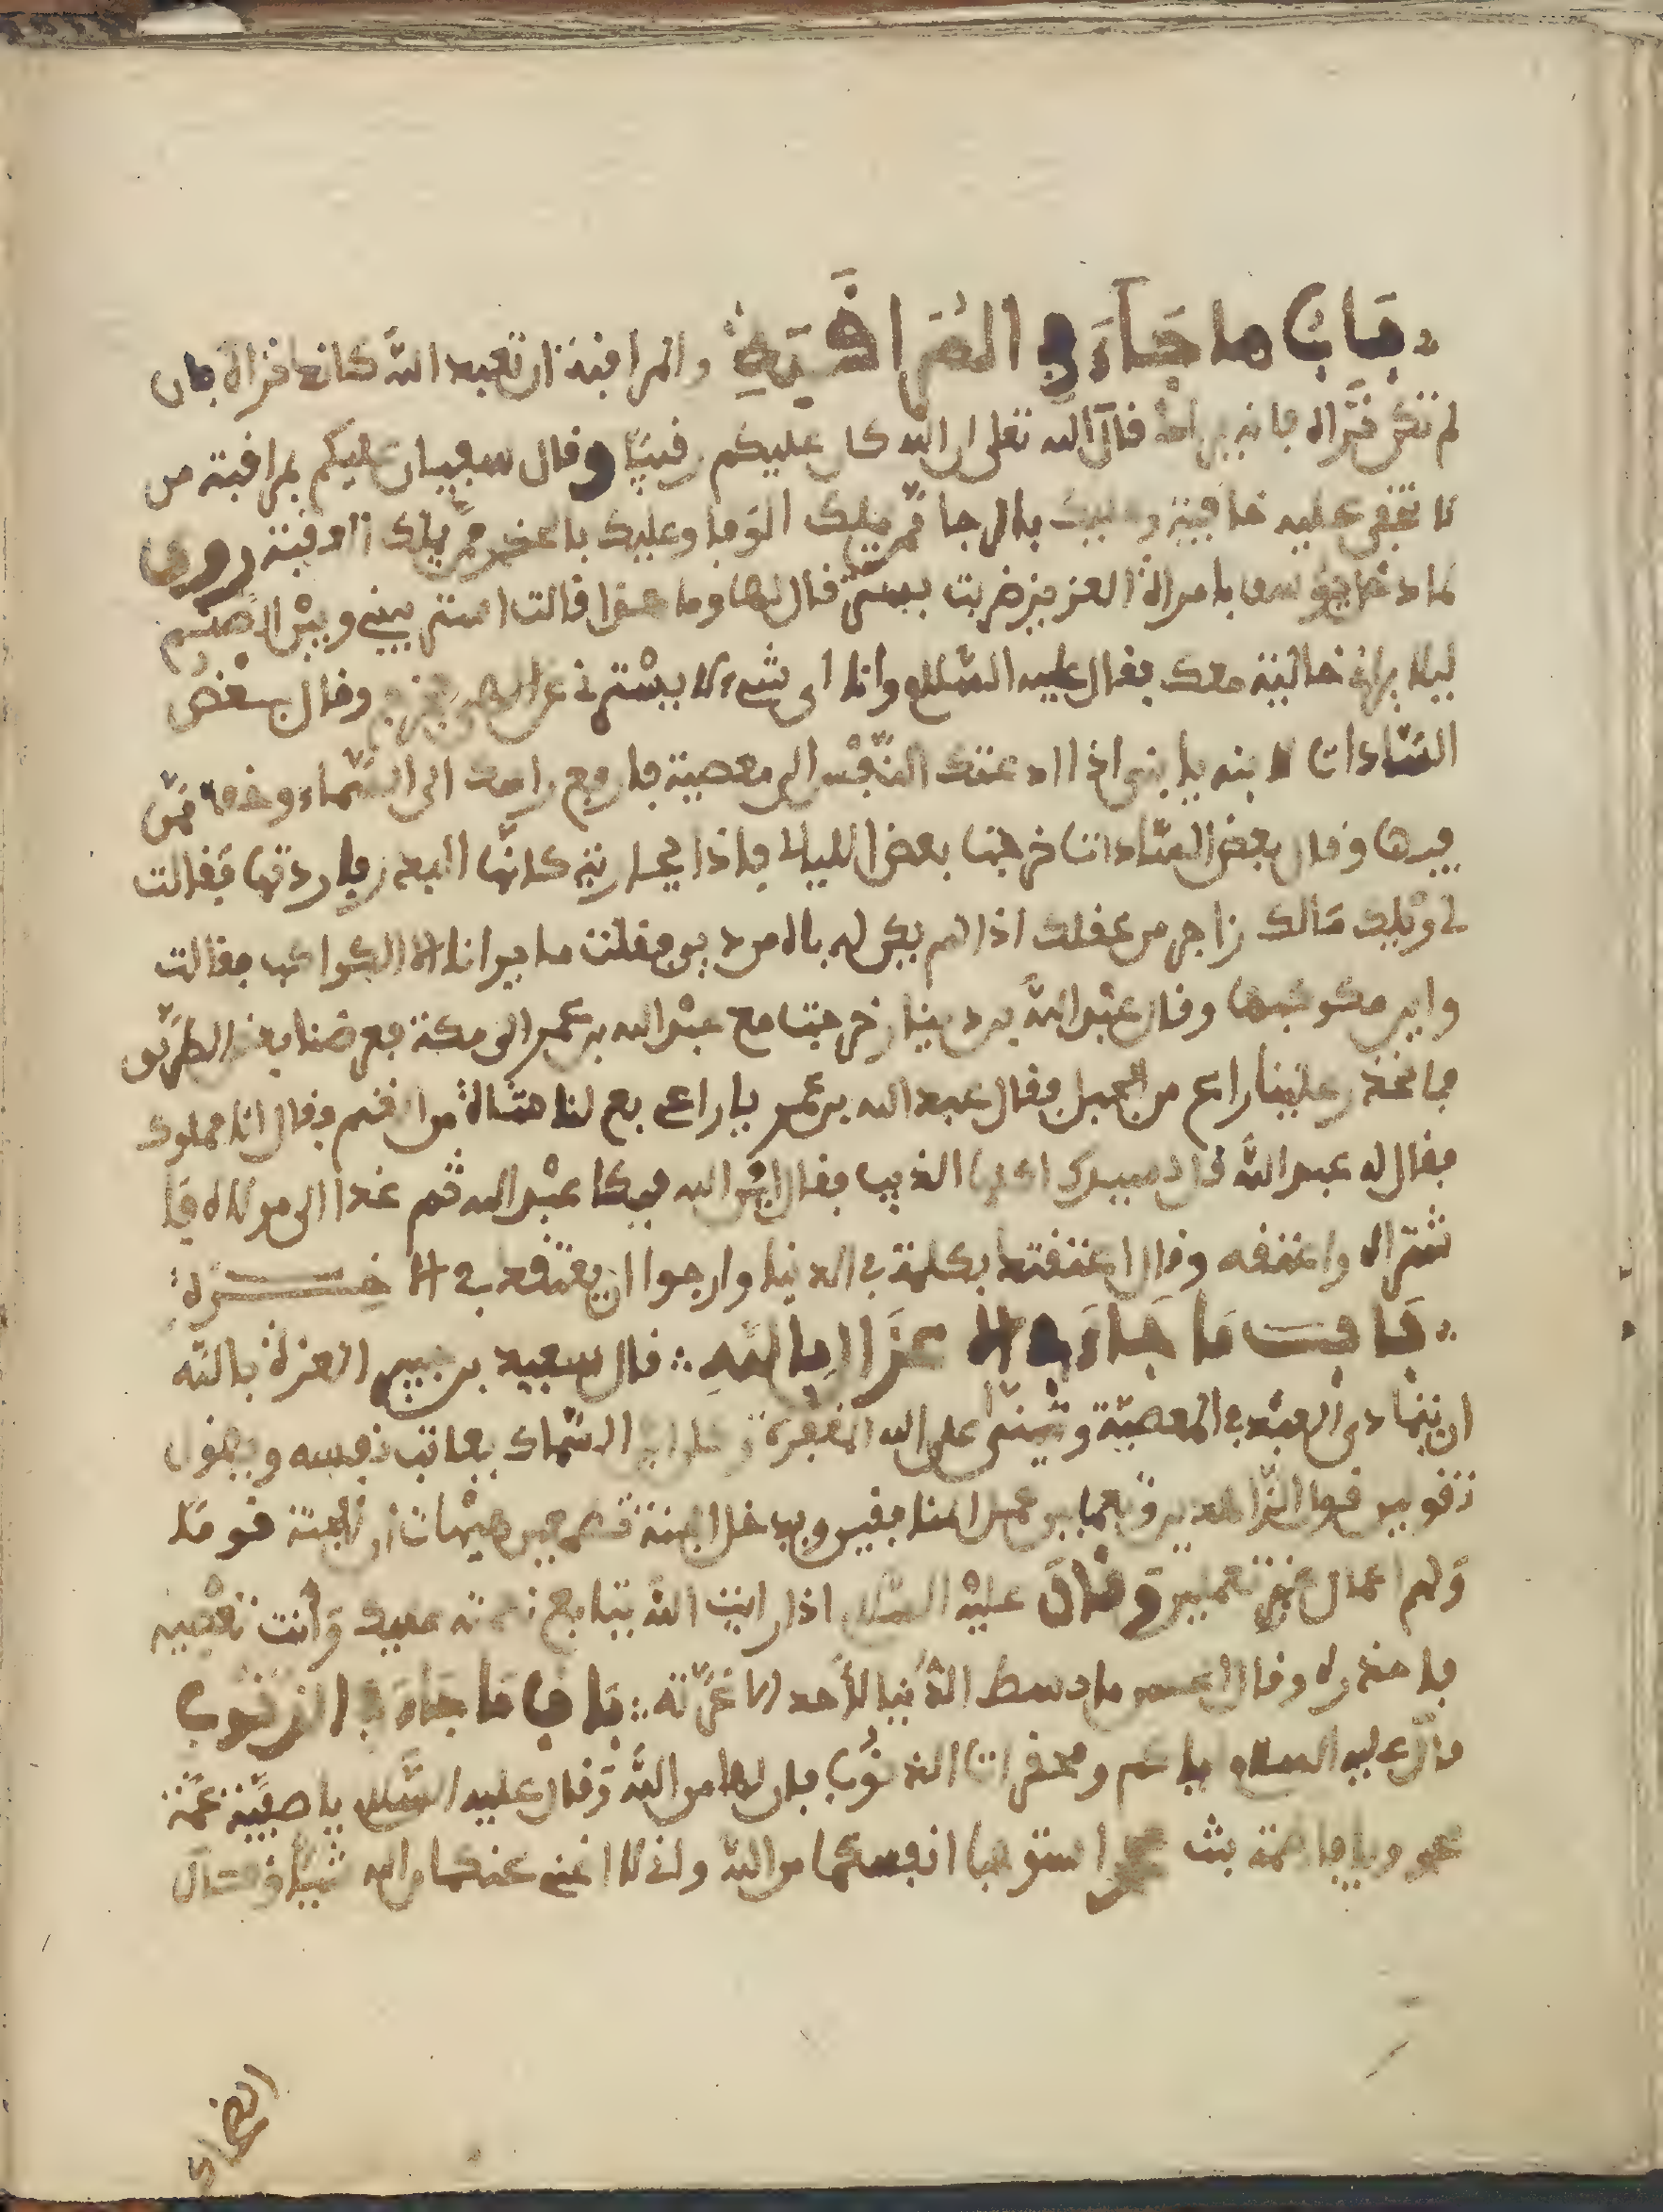 باب ما جآء في المراقبة والمراقبة ان تعبد الله كانك تراه فان
لم تكن تراه فانه يراك قال الله تعلى ان الله كان عليكم رقيبا وقال سفيان عليكم بمراقبة من
لا تخفى عليه خافية وعليك بالرجا ممن يملك الوفا وعليك بالحذر ممن يملك العقوبة وروي
لما دخل يوسف بامراة العزيز ضربت بستر فقال لها وما هذا قالت استر بيني وبين الصنم
ليلا يراني خالية معك فقال عليه السلام وانا اى شيء لا يسترني عن الله عز وجل وقال بعض
السادات لابنه يا بني اذا ادعتك النفس الى معصية فارفع راسك الى السماء وخف ممن
فيها وقال بعض السادات خرجنا بعض الليالي فاذا بجارية كانها البدر فاردتها فقالت
لي ويلك مالك زاجر من عقلك اذا لم يكن لك زاجر من دين فقلت ما يرانا الا الكواكب فقالت
واين مكوكبها وقال عبد الله بن دينار خرجنا مع عبد الله بن عمر الى مكة فعرضنا بعض الطريق
فانحدر علينا راع من الجبل فقال عبد الله بن عمر يا راعي بع لنا شاة من الغنم فقال انا مملوك
فقال له عبد الله قل لسيدك اكلها الذيب فقال اين الله فبكا عبد الله ثم غدا الى مولاه فا
شتراه واعتقه وقال اعتقتك بكلمة في الدنيا وارجوا ان يعتقك في الاخرة
باب ما جاء في الاغترار بالله قال سعيد بن جبير الغرة بالله
ان يتمادى العبد في المعصية ويتمنى على الله المغفرة وكان ابن السماك يعاتب نفسه ويقول
تقولين قول الزاهدين وتعملين عمل المنافقين وبدخل الجنة تطمعين هيهات ان للجنة قوما
ولهم اعمال غير تعملين وقال عليه السلام اذا رايت الله يتابع نعمته عليك وانت تعصيه
فاحذره وقال الحسن ما بسط الدنيا لأحد الا غرته باب ما جاء في الذنوب
قال عليه السلام ياكم ومحقرات الذنوب فان لها من الله وقال عليه السلام يا صفية عمة
محمد ويا فاطمة بنت محمد استوهبا انفسكما من الله واني لا اغني عنكما من الله شيئا وقال